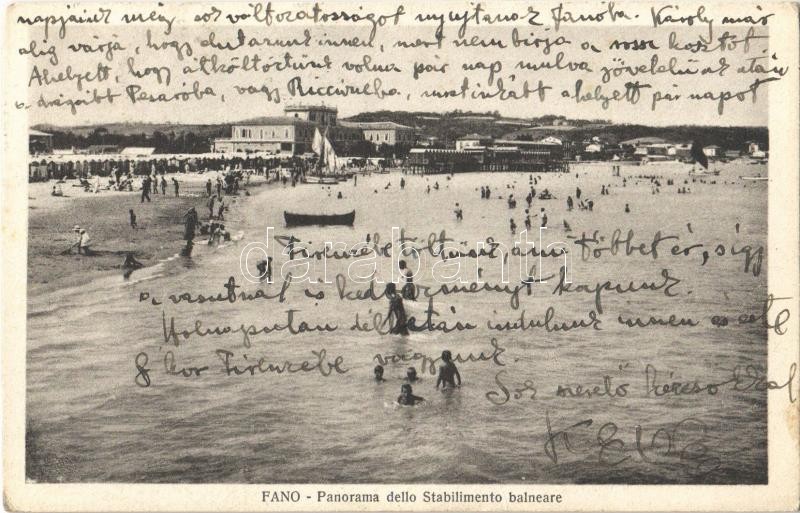 napjaink még sok változatosságot nyujtanak Fanóba. Károly már
alig várja, hogy elutazunk innen, mert nem birja a rossz kosztot.
Ahelyett, hogy átköltöztünk volna pár nap mulva az után
a drágább Pesaróba, vagy Riccioneba, most inkább ahelyett pár napot
Firenzébe töltünk, ami többet ér, s így
a vasutnál is kedvezményt kapunk.
Holnapután délután indulunk innen és este
8 kor Firenzébe vagyunk.
Sok szerető kézcsókkal
darabanth
FANO - Panorama dello Stabilimento balneare